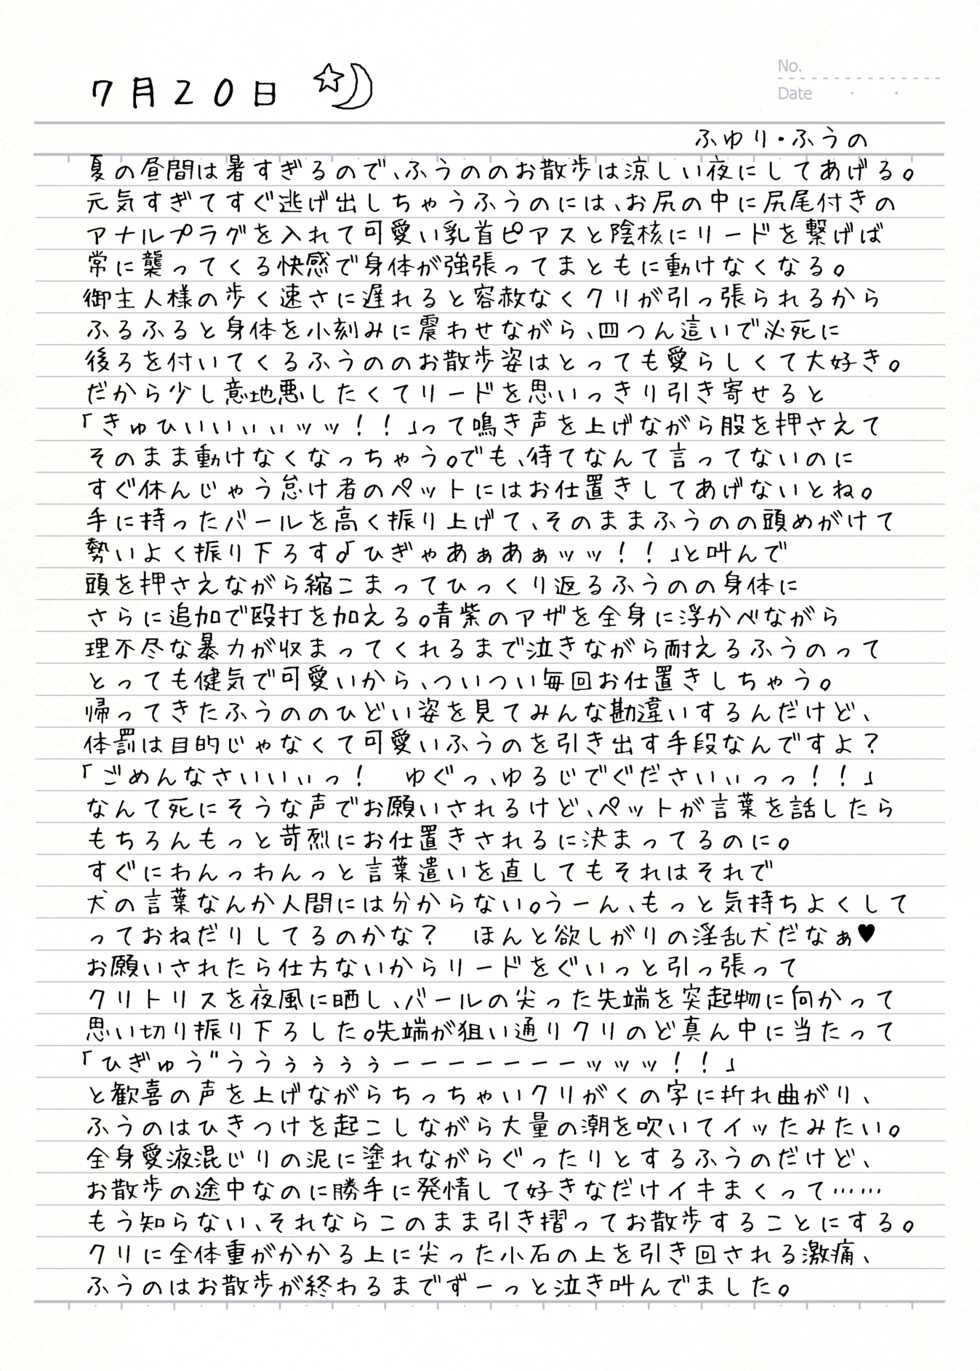 No.
Date
7月20日
ふゆり・ふうの
夏の昼間は暑すぎるので、ふうののお散歩は涼しい夜にしてあげる。
元気すぎてすぐ逃げ出しちゃうふうのには、お尻の中に尻尾付きの
アナルプラグを入れて可愛い乳首ピアスと陰核にリードを繋げば
常に襲ってくる快感で身体が強張ってまともに動けなくなる。
御主人様の歩く速さに遅れると容赦なくクリが引っ張られるから
ふるふると身体を小刻みに震わせながら、四つん這いで必死に
後ろを付いてくるふうののお散歩姿はとっても愛らしくて大好き。
だから少し意地悪したくてリードを思いっきり引き寄せると
「きゅひいいぃぃぃッッ！！」って鳴き声を上げながら股を押さえて
そのまま動けなくなっちゃう。でも、待てなんて言ってないのに
すぐ休んじゃう怠け者のペットにはお仕置きしてあげないとね。
手に持ったバールを高く振り上げて、そのままふうのの頭めがけて
勢いよく振り下ろす。「ひぎゃあぁあぁッッ！！」と叫んで
頭を押さえながら縮こまってひっくり返るふうのの身体に
さらに追加で殴打を加える。青紫のアザを全身に浮かべながら
理不尽な暴力が収まってくれるまで泣きながら耐えるふうのって
とっても健気で可愛いから、ついつい毎回お仕置きしちゃう。
帰ってきたふうののひどい姿を見てみんな勘違いするんだけど、
体罰は目的じゃなくて可愛いふうのを引き出す手段なんですよ？
「ごめんなさいいぃぃっ！　ゆぐっ、ゆるじでぐださいぃぃっっ！！」
なんて死にそうな声でお願いされるけど、ペットが言葉を話したら
もちろんもっと苛烈にお仕置きされるに決まってるのに。
すぐにわんっわんっと言葉遣いを直してもそれはそれで
犬の言葉なんか人間には分からない。うーん、もっと気持ちよくして
っておねだりしてるのかな？　ほんと欲しがりの淫乱犬だなぁ♥
お願いされたら仕方ないからリードをぐいっと引っ張って
クリトリスを夜風に晒し、バールの尖った先端を突起物に向かって
思い切り振り下ろした。先端が狙い通りクリのど真ん中に当たって
「ひぎゅう゛ううぅぅぅぅーーーーーーーッッッ！！」
と歓喜の声を上げながらちっちゃいクリがくの字に折れ曲がり、
ふうのはひきつけを起こしながら大量の潮を吹いてイッたみたい。
全身愛液混じりの泥に塗れながらぐったりとするふうのだけど、
お散歩の途中なのに勝手に発情して好きなだけイキまくって……
もう知らない、それならこのまま引き摺ってお散歩することにする。
クリに全体重がかかる上に尖った小石の上を引き回される激痛、
ふうのはお散歩が終わるまでずーっと泣き叫んでました。